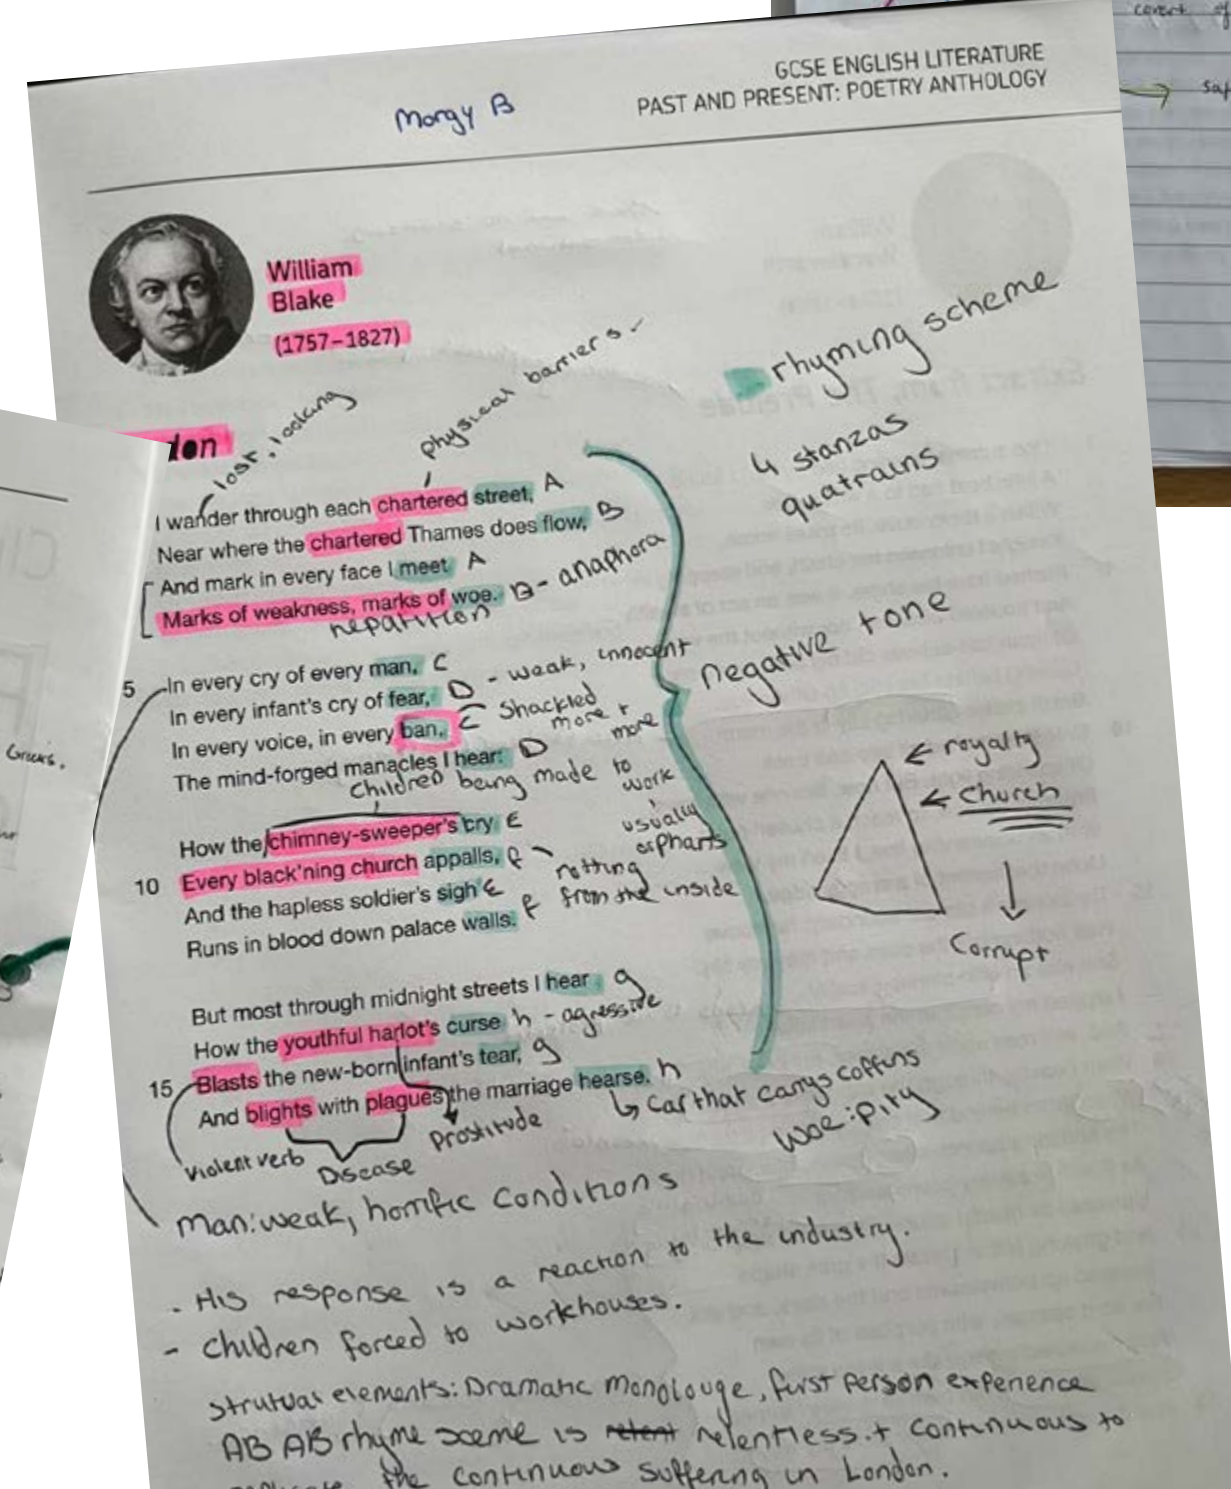 covert of
GCSE ENGLISH LITERATURE
PAST AND PRESENT: POETRY ANTHOLOGY
Morgy B
William
Blake
(1757–1827)
rhyming scheme
4 stanzas
quatrains
lost, looking
physical barriers
don
I wander through each chartered street, A
Near where the chartered Thames does flow, B
And mark in every face I meet A
Marks of weakness, marks of woe. B - anaphora
repatition
negative tone
5 In every cry of every man, C
In every infant's cry of fear, D - weak, innocent
In every voice, in every ban, C Shackled
more + more
The mind-forged manacles I hear: D
Children being made to work
usually orphans
How the chimney-sweeper's cry E
10 Every black'ning church appalls, F
rotting from the inside
And the hapless soldier's sigh E
Runs in blood down palace walls. F
← royalty
← Church
Corrupt
But most through midnight streets I hear g
How the youthful harlot's curse h - agressive
15 Blasts the new-born infant's tear, g
And blights with plagues the marriage hearse. h
↳ Car that carrys coffins
woe: pity
Violent verb
Disease
Prostitude
Man: weak, horrific conditions
- His response is a reaction to the industry.
- Children forced to workhouses.
Strutual elements: Dramatic Monolouge, first person experience
ABAB rhyme sceme is relentless + continuous to
the continuous suffering in London.